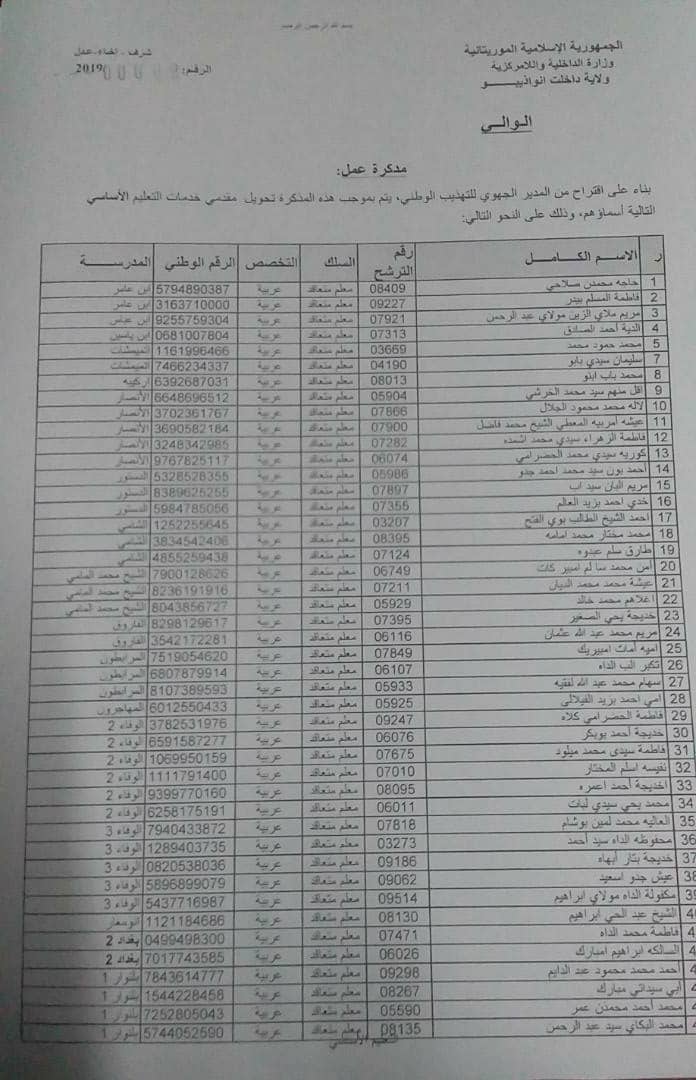 الجمهورية الإسلامية الموريتانية
وزارة الداخلية واللامركزية
ولاية داخلت انواذيبـــــو
شرف - إخاء - عدل
الرقم: 2019
الـوالـي
مذكرة عمل:
بناء على اقتراح من المدير الجهوي للتهذيب الوطني، يتم بموجب هذه المذكرة تحويل مقدمي خدمات التعليم الأساسي
التالية أسماؤهم، وذلك على النحو التالي:
ر الاسم الكامل رقم الترشح السلك التخصص الرقم الوطني المدرسة
1 حاجه محمدن صلاحي 08409 معلم متعاقد عربية 5794890387 ابن عامر
2 فاطمة المسلم بيدر 09227 معلم متعاقد عربية 3163710000 ابن عامر
3 مريم ملاي الزين مولاي عبد الرحمن 07921 معلم متعاقد عربية 9255759304 ابن عباس
4 الدية أحمد الصادق 07313 معلم متعاقد عربية 0681007804 ابن ياسين
5 محمد حمود محمد 03669 معلم متعاقد عربية 1161996466 الميشات
7 سليمان سيدي بابو 04190 معلم متعاقد عربية 7466234337 الميشات
8 محمد باب ابنو 08013 معلم متعاقد عربية 6392687031
9 أقل منهم سيد محمد الخرشي 05904 معلم متعاقد عربية 6648696512 الأنصار
10 لاله محمد محمود الجلال 07866 معلم متعاقد عربية 3702361767 الأنصار
11 عيشه أمربيه المعطي الشيخ محمد فاضل 07900 معلم متعاقد عربية 3690582184 الأنصار
12 فاطمة الزهراء سيدي محمد اشمده 07282 معلم متعاقد عربية 3248342985 الأنصار
13 كوريه سيدي محمد الحضرامي 06074 معلم متعاقد عربية 9767825117 الأنصار
14 أحمد بون سيد محمد احمد جدو 05986 معلم متعاقد عربية 5328528355 الدستور
15 مريم البان سيد اب 07897 معلم متعاقد عربية 8389625255 الدستور
16 خدي احمد بزيد العالم 07355 معلم متعاقد عربية 5984785056 الدستور
17 احمد الشيخ الطالب بوي الفتح 03207 معلم متعاقد عربية 1252255645 الشامي
18 محمد مختار محمد امامه 08395 معلم متعاقد عربية 3834542406 الشامي
19 طارق سلم عبدوه 07124 معلم متعاقد عربية 4855259438 الشامي
20 أمن محمد سالم امبير كات 06749 معلم متعاقد عربية 7900128626 الشيخ محمد المامي
21 عيشة محمد محمد الديان 07211 معلم متعاقد عربية 8236191916 الشيخ محمد المامي
22 اغلاهم محمد خالد 05929 معلم متعاقد عربية 8043856727 الشيخ محمد المامي
23 خديجة يحي الصغير 07395 معلم متعاقد عربية 8298129617 الفاروق
24 مريم محمد عبد الله عثمان 06116 معلم متعاقد عربية 3542172281 الفاروق
25 اميه أمات امبيريك 07849 معلم متعاقد عربية 7519054620 المرابطون
26 تكبر الب الداه 06107 معلم متعاقد عربية 6807879914 المرابطون
27 سهام محمد عبد الله لفقيه 05933 معلم متعاقد عربية 8107389593 المرابطون
28 امي احمد بزيد الفيلالي 05925 معلم متعاقد عربية 6012550433 المهاجرون
29 فاطمة الحضرامي كلاه 09247 معلم متعاقد عربية 3782531976 الوفاء 2
30 خديجة أحمد بوبكر 06076 معلم متعاقد عربية 6591587277 الوفاء 2
31 فاطمة سيدى محمد ميلود 07675 معلم متعاقد عربية 1069950159 الوفاء 2
32 نفيسه اسلم المختار 07010 معلم متعاقد عربية 1111791400 الوفاء 2
33 اخديجة أحمد اعمره 08095 معلم متعاقد عربية 9399770160 الوفاء 2
34 محمد يحي سيدي لبات 06011 معلم متعاقد عربية 6258175191 الوفاء 2
35 العاليه محمد لمين بوشام 07818 معلم متعاقد عربية 7940433872 الوفاء 3
36 محفوظه الداه سيد أحمد 03273 معلم متعاقد عربية 1289403735 الوفاء 3
37 خديجة بتار أبهاه 09186 معلم متعاقد عربية 0820538036 الوفاء 3
38 عيش جدو اسعيد 09062 معلم متعاقد عربية 5896899079 الوفاء 3
39 مكفولة الداه مولاي ابراهيم 09514 معلم متعاقد عربية 5437716987 الوفاء 3
4 الشيخ عبد الحي ابراهيم 08130 معلم متعاقد عربية 1121184686
4 فاطمة محمد الداه 07471 معلم متعاقد عربية 0499498300 بغداد 2
4 السالكه ابراهيم امبارك 06026 معلم متعاقد عربية 7017743585 بغداد 2
4 احمد محمد محمود عبد الدايم 09298 معلم متعاقد عربية 7843614777 بلنوار 1
4 أبي سيداتي مبارك 08267 معلم متعاقد عربية 1544228458 بلنوار 1
4 محمد أحمد محمدن عمر 05590 معلم متعاقد عربية 7252805043 بلنوار 1
4 محمد البكاي سيد عبد الرحمن 08135 معلم متعاقد عربية 5744052590 بلنوار 1